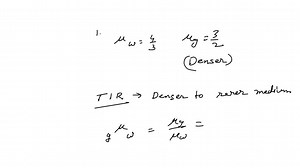 1.
μw = 4/3 μg = 3/2
(Denser)
TIR → Denser to rarer medium
gμw = μg/μw =